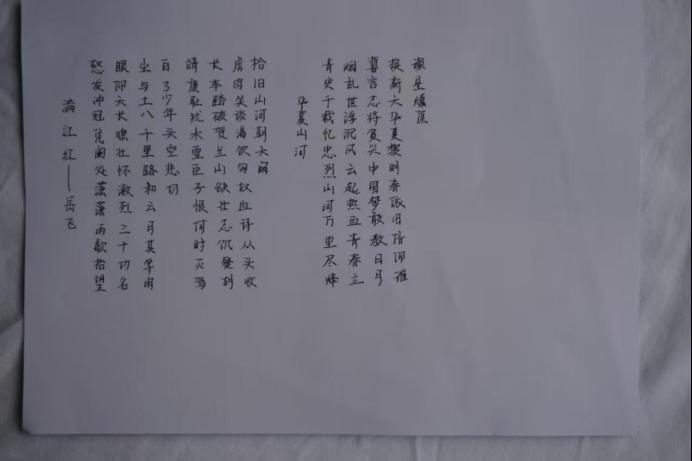 满江红——岳飞
怒发冲冠凭阑处潇潇雨歇抬望
眼仰天长啸壮怀激烈三十功名
尘与土八千里路和云月莫等闲
白了少年头空悲切
靖康耻犹未雪臣子恨何时灭驾
长车踏破贺兰山缺壮志饥餐胡
虏肉笑谈渴饮匈奴血待从头收
拾旧山河朝天阙
华夏山河
青史千载忆忠烈山河万里尽烽
烟乱世浮沉风云起热血青春立
誓言志将复兴中国梦敢教日月
换新天华夏黎明春依旧
星燎原